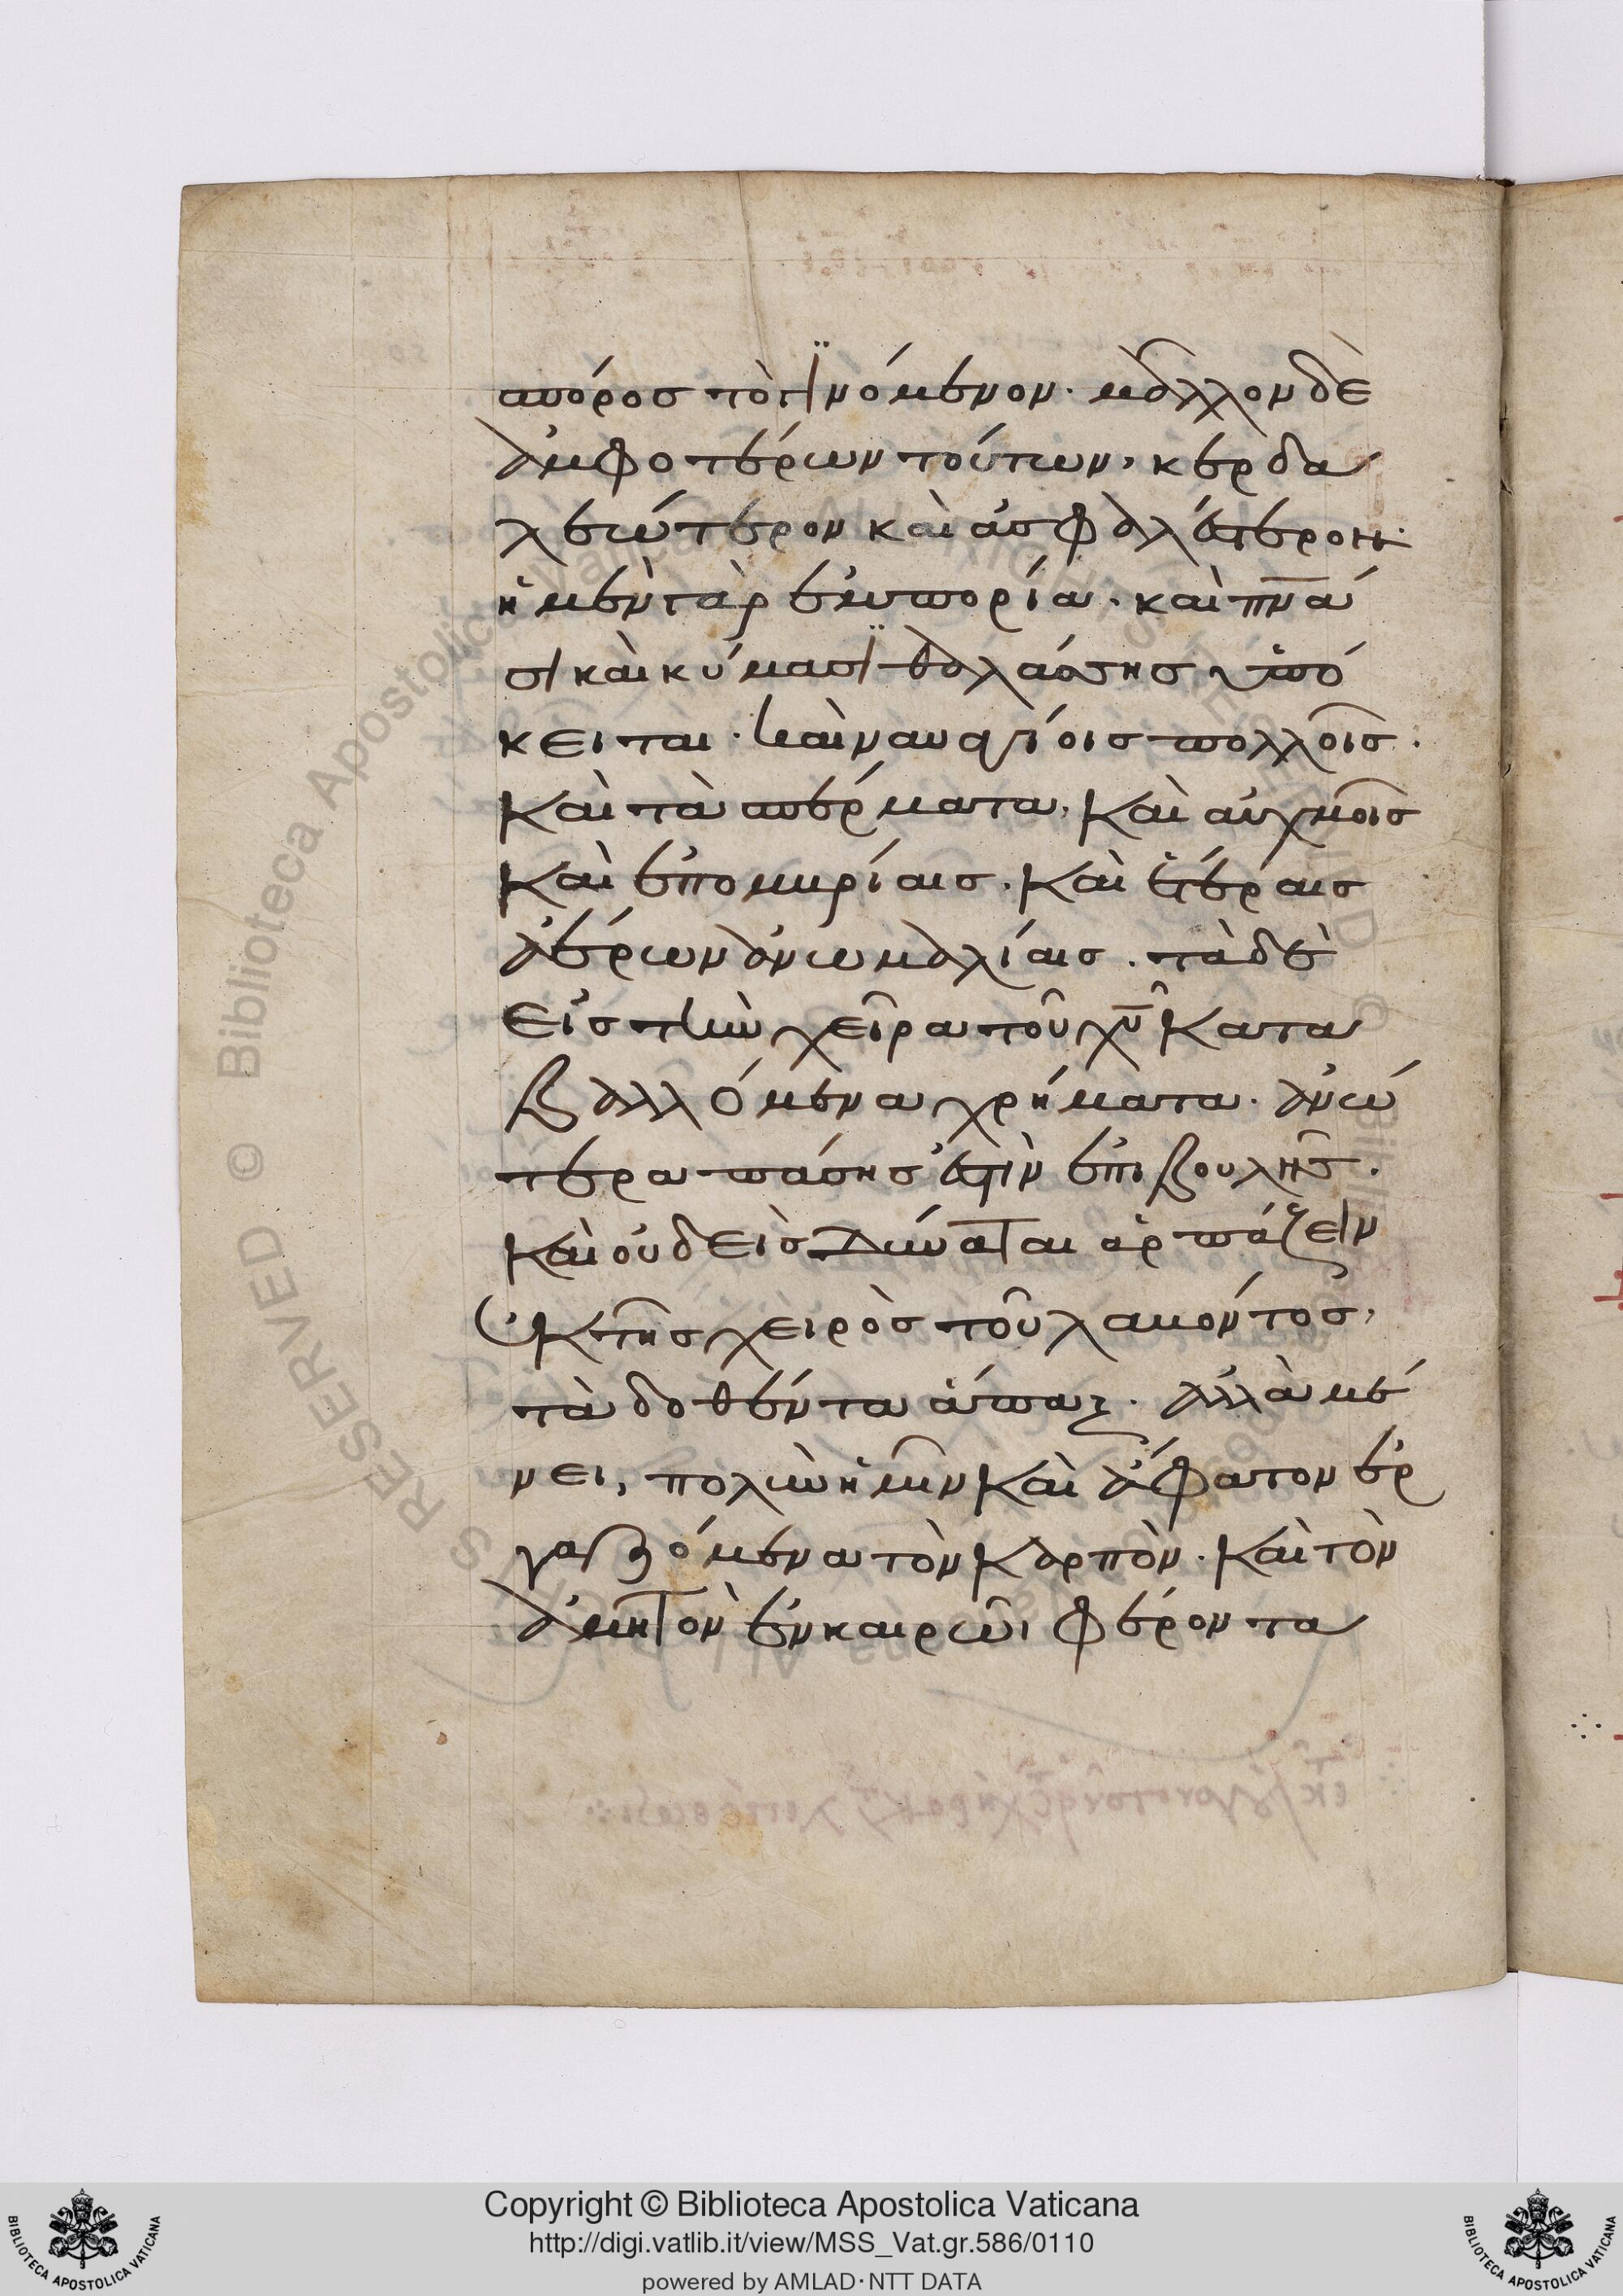 σπόρος τὸ γϊνόμενον· μᾶλλον δὲ
ἀμφοτέρων τούτων, κερδα
λεώτερον καὶ ἀσφαλέστερον·
ἡ μὲν γὰρ ἐμπορία. καὶ πν̅ά
σι καὶ κύμασϊ θαλάσσης ὑπό
κειται. καὶ ναυαγίοις πολλοῖς.
καὶ τὰ σπέρματα, καὶ αὐχμοῖς
καὶ ἐπομβρίαις. καὶ ἑτέραις
ἀέρων ἀνωμαλίαις. τὰ δὲ
εἰς τὴν χεῖρα τοῦ χ̅υ̅ κατα
βαλλόμενα χρήματα. ἀνώ
τερα πάσης ἐστὶν ἐπιβουλῆς.
καὶ οὐδεὶς δύναται ἁρπάζειν
ἐκ τῆς χειρὸς τοῦ λαβόντος,
τὰ δοθέντα ἅπαξ. ἀλλὰ μέ
νει, πολὺν ἡμῖν καὶ ἄφατον ἐρ
γαζόμενα τὸν καρπὸν. καὶ τὸν
ἀμητὸν ἐν καιρῶι φέροντα
Copyright © Biblioteca Apostolica Vaticana
http://digi.vatlib.it/view/MSS_Vat.gr.586/0110
powered by AMLAD·NTT DATA
BIBLIOTECA APOSTOLICA VATICANA
BIBLIOTECA APOSTOLICA VATICANA